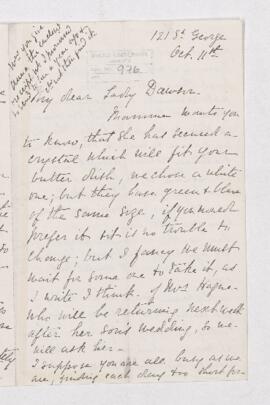 121 St. George
Oct. 11th
976
My dear Lady Dawson.
Mamma wants you
to know, that she has secured a
crystal which will fit your
butter dish, we chose a white
one; but they have green & blue
of the same size, if you would
prefer it so it is no trouble to
change; but I fancy we must
wait for some one to take it, as
I write I think of Mrs
who will be returning next week
after her son's wedding, so we
will ask her.
I suppose you are all busy as we
are, finding each day too short for